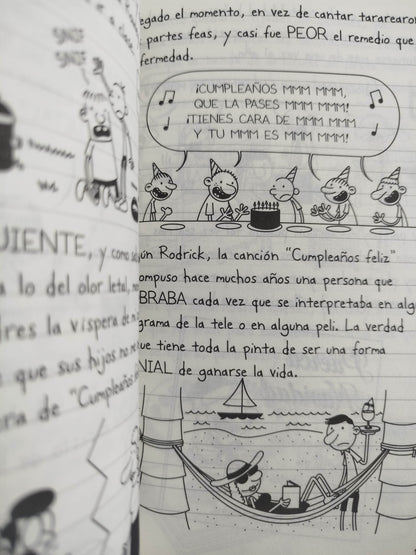 SNIF
SNIF
UIENTE, y como
a lo del olor letal,
dres la víspera de
que sus hijos no
ra de "Cumpleaños
egado el momento, en vez de cantar tararearon
partes feas, y casi fue PEOR el remedio que
fermedad.
¡CUMPLEAÑOS MMM MMM,
QUE LA PASES MMM MMM!
¡TIENES CARA DE MMM MMM
Y TU MMM ES MMM MMM!
ún Rodrick, la canción "Cumpleaños feliz"
ompuso hace muchos años una persona que
BRABA cada vez que se interpretaba en algún
grama de la tele o en alguna peli. La verdad
ue tiene toda la pinta de ser una forma
NIAL de ganarse la vida.